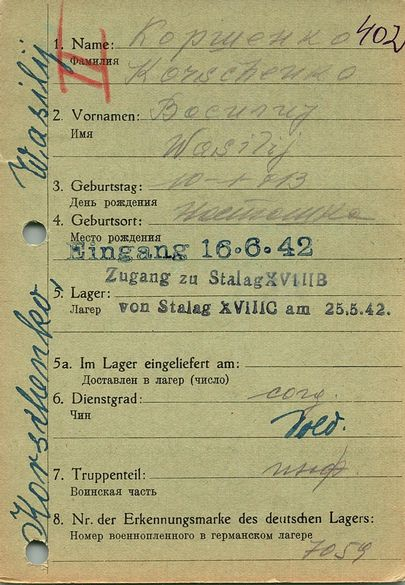 402
II
1. Name: Коршенко
Фамилия
Korschenko
2. Vornamen: Василий
Имя
Wasilij
3. Geburtstag:
День рождения
4. Geburtsort:
Место рождения
Eingang 16.6.42
Zugang zu Stalag XVIIIB
5. Lager: von Stalag XVIIIC am 25.5.42.
Лагер
5a. Im Lager eingeliefert am:
Доставлен в лагер (число)
6. Dienstgrad: солд.
Чин
Sold.
7. Truppenteil: инф.
Воинская часть
8. Nr. der Erkennungsmarke des deutschen Lagers:
Номер военнопленного в германском лагере
7059
Korschenko, Wasilij